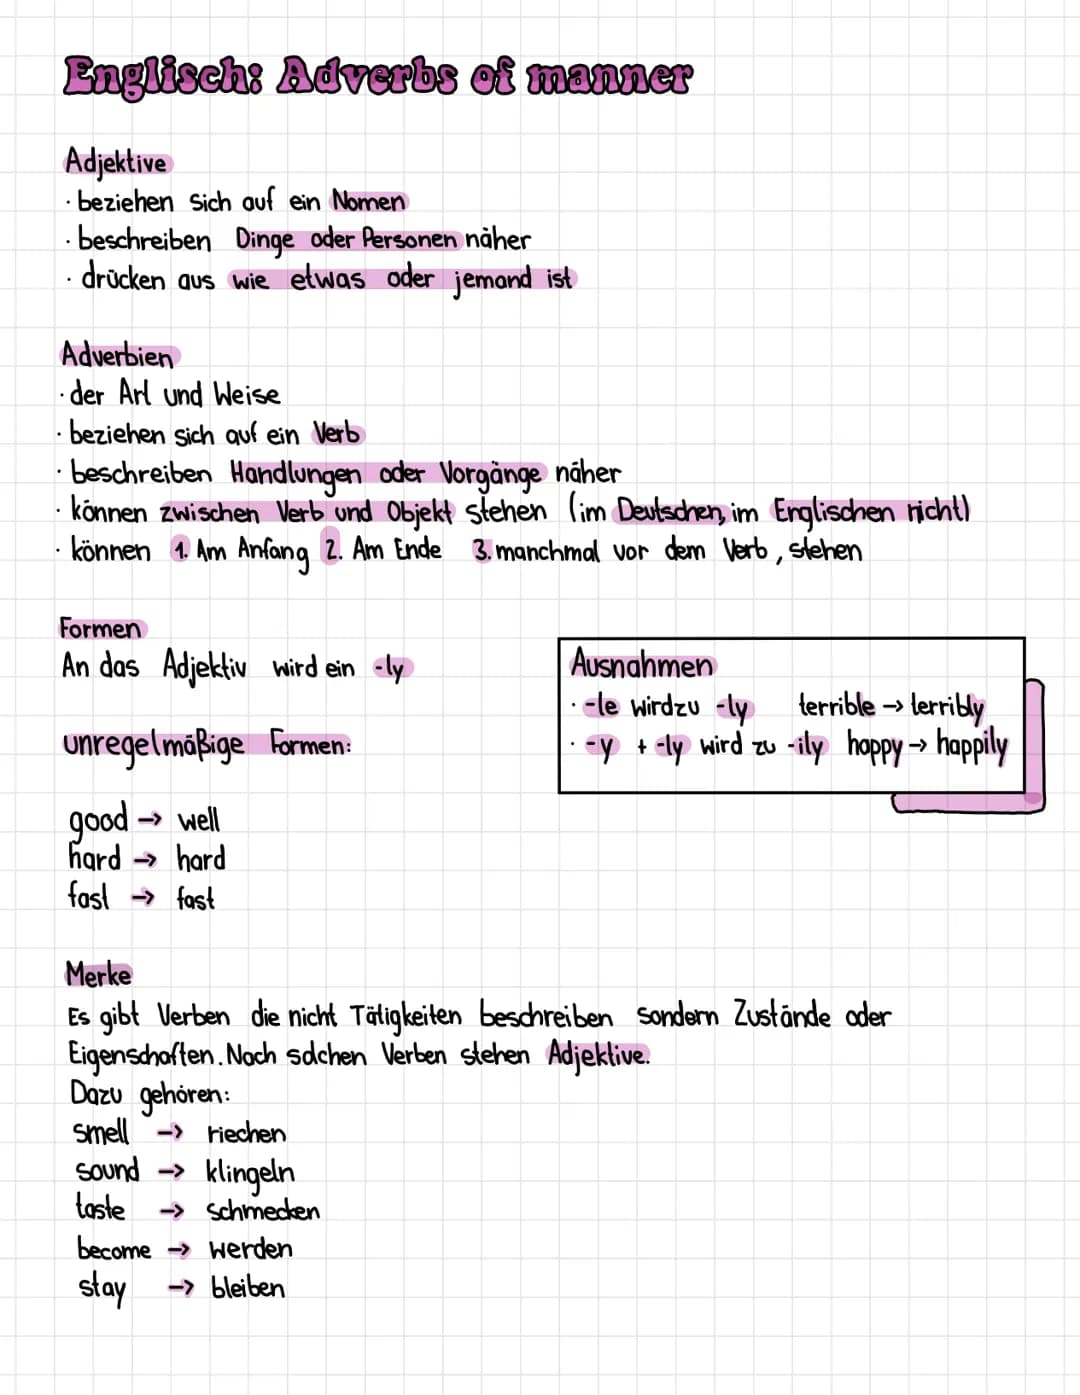 Englisch: Adverbs of manner
Adjektive
· beziehen sich auf ein Nomen
· beschreiben Dinge oder Personen näher
· drücken aus wie etwas oder jemand ist
Adverbien
· der Art und Weise
· beziehen sich auf ein Verb
· beschreiben Handlungen oder Vorgänge näher
· können zwischen Verb und Objekt stehen (im Deutschen, im Englischen nicht)
· können 1. Am Anfang 2. Am Ende 3. manchmal vor dem Verb, stehen
Formen
An das Adjektiv wird ein -ly
unregelmäßige Formen:
good → well
hard → hard
fast → fast
Ausnahmen
· -le wird zu -ly terrible → terribly
· -y + -ly wird zu -ily happy → happily
Merke
Es gibt Verben die nicht Tätigkeiten beschreiben sondern Zustände oder
Eigenschaften. Nach solchen Verben stehen Adjektive.
Dazu gehören:
smell → riechen
sound → klingeln
taste → schmecken
become → werden
stay → bleiben